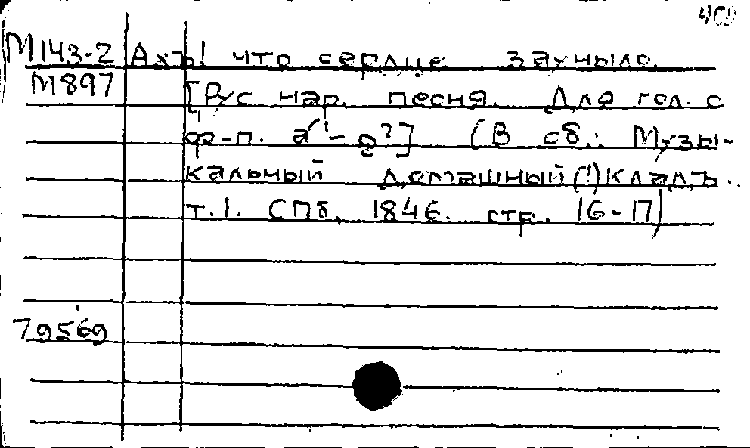 М143-2 Ахъ! что сердце зауныло.
М897 [Рус нар. песня. Для гол. с
ф-п. a'-g²] (В сб.: Музы-
кальный домашный(!)кладъ.
т.1. СПб, 1846. стр. 16-17)
79569